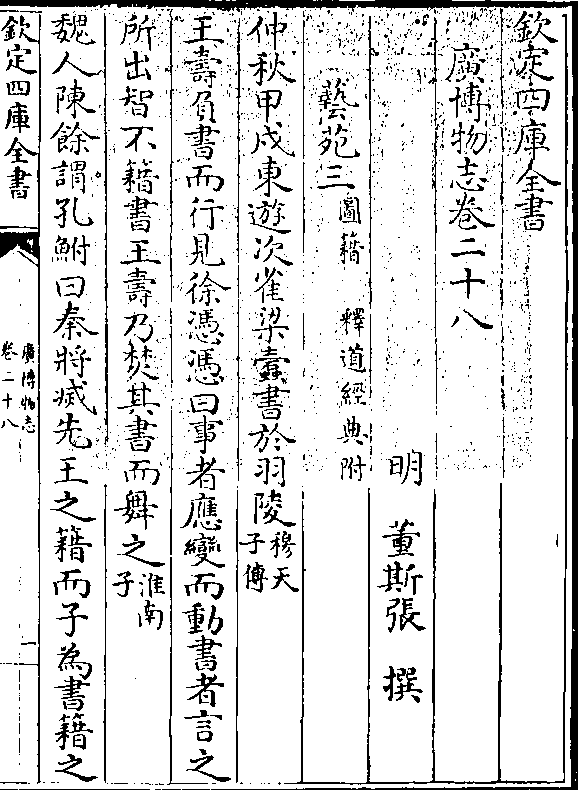 欽定四庫全書
廣博物志卷二十八
明　董斯張　撰
藝苑三圖籍　釋道經典附
仲秋甲戌東遊次雀梁蠹書於羽陵穆天子傳
王壽負書而行見徐馮馮曰事者應變而動書者言之
所出智不籍書王壽乃焚其書而舞之淮南子
魏人陳餘謂孔鮒曰秦將滅先王之籍而子為書籍之
欽定四庫全書
廣博物志
卷二十八
一